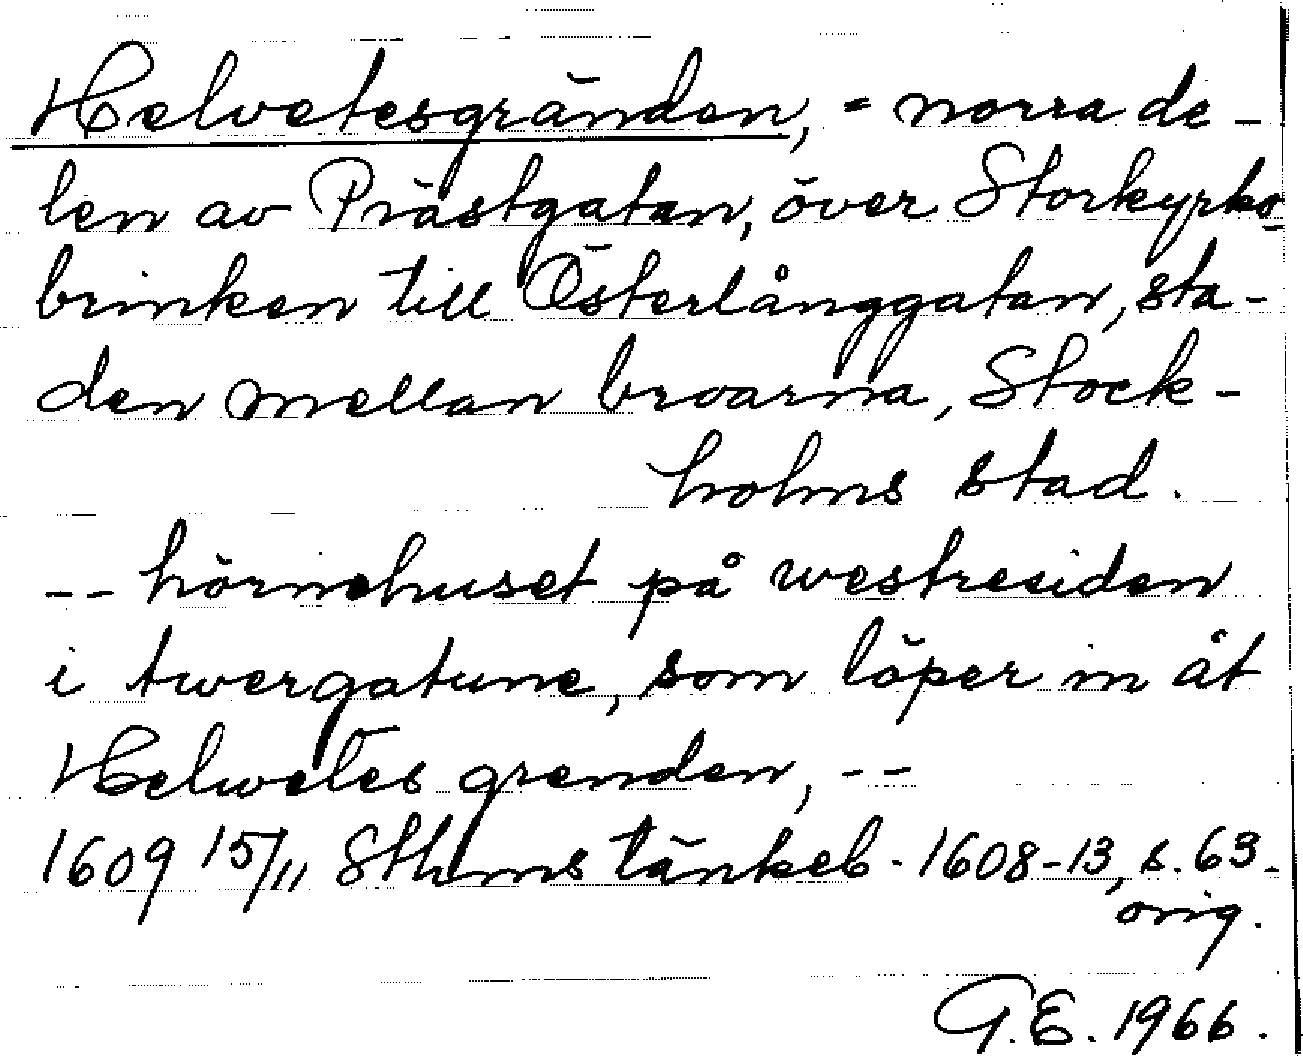 Helvetesgränden, = norra de-
len av Prästgatan, över Storkyrko-
brinken till Österlånggatan, sta-
den mellan broarna, Stock-
holms stad.
-- hörnehuset på westresiden
i twergatune, som löper in åt
Helwetes grenden, --
1609 15/11 Sthms tänkeb. 1608-13, s. 63.
orig.
G.E. 1966.